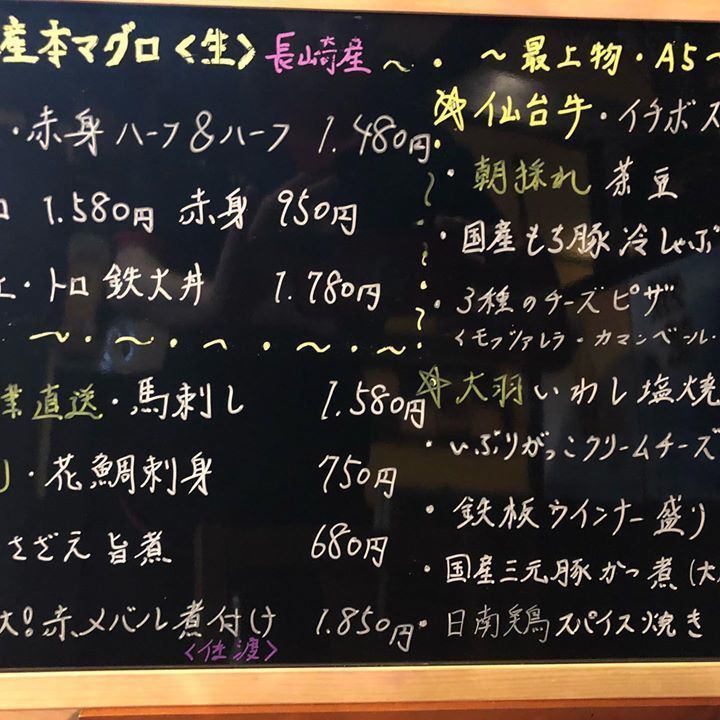 産本マグロ〈生〉長崎産
・赤身ハーフ&ハーフ 1.480円
ロ 1.580円 赤身 950円
・トロ鉄火丼 1.780円
直送・馬刺し 1.580円
・花鯛刺身 750円
さざえ旨煮 680円
大!赤メバル煮付け 1.850円
〈佐渡〉
〜最上物・A5〜
仙台牛・イチボス
・朝採れ 茶豆
・国産もち豚冷しゃぶ
・3種のチーズピザ
〈モッツァレラ・カマンベール・
大羽いわし塩焼
・いぶりがっこクリームチーズ
・鉄板ウインナー盛り
・国産三元豚かつ煮(大
・日南鶏スパイス焼き